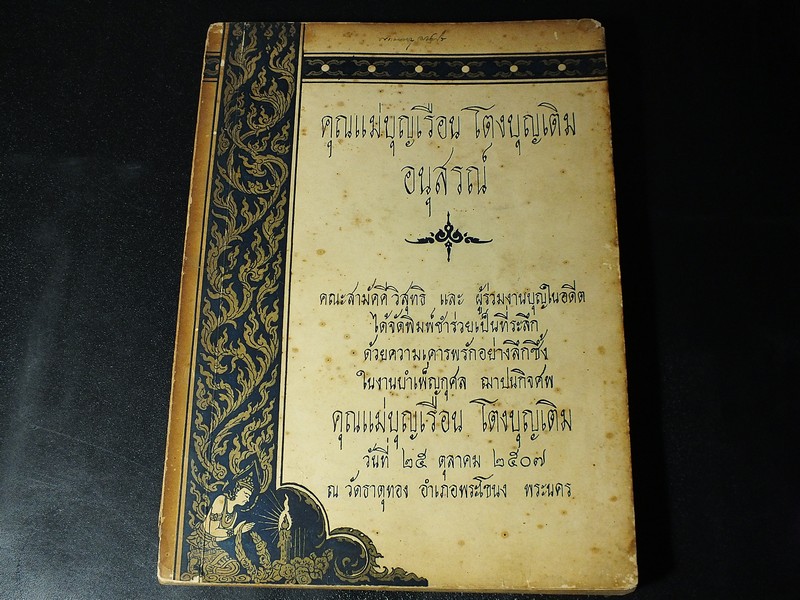 คุณแม่บุญเรือน โตงบุญเติม
อนุสรณ์
คณะสามัคคีวิสุทธิ และ ผู้ร่วมงานบุญในอดีต
ได้จัดพิมพ์ชำร่วยเป็นที่ระลึก
ด้วยความเคารพรักอย่างลึกซึ้ง
ในงานบำเพ็ญกุศล ฌาปนกิจศพ
คุณแม่บุญเรือน โตงบุญเติม
วันที่ ๒๕ ตุลาคม ๒๕๐๗
ณ วัดธาตุทอง อำเภอพระโขนง พระนคร